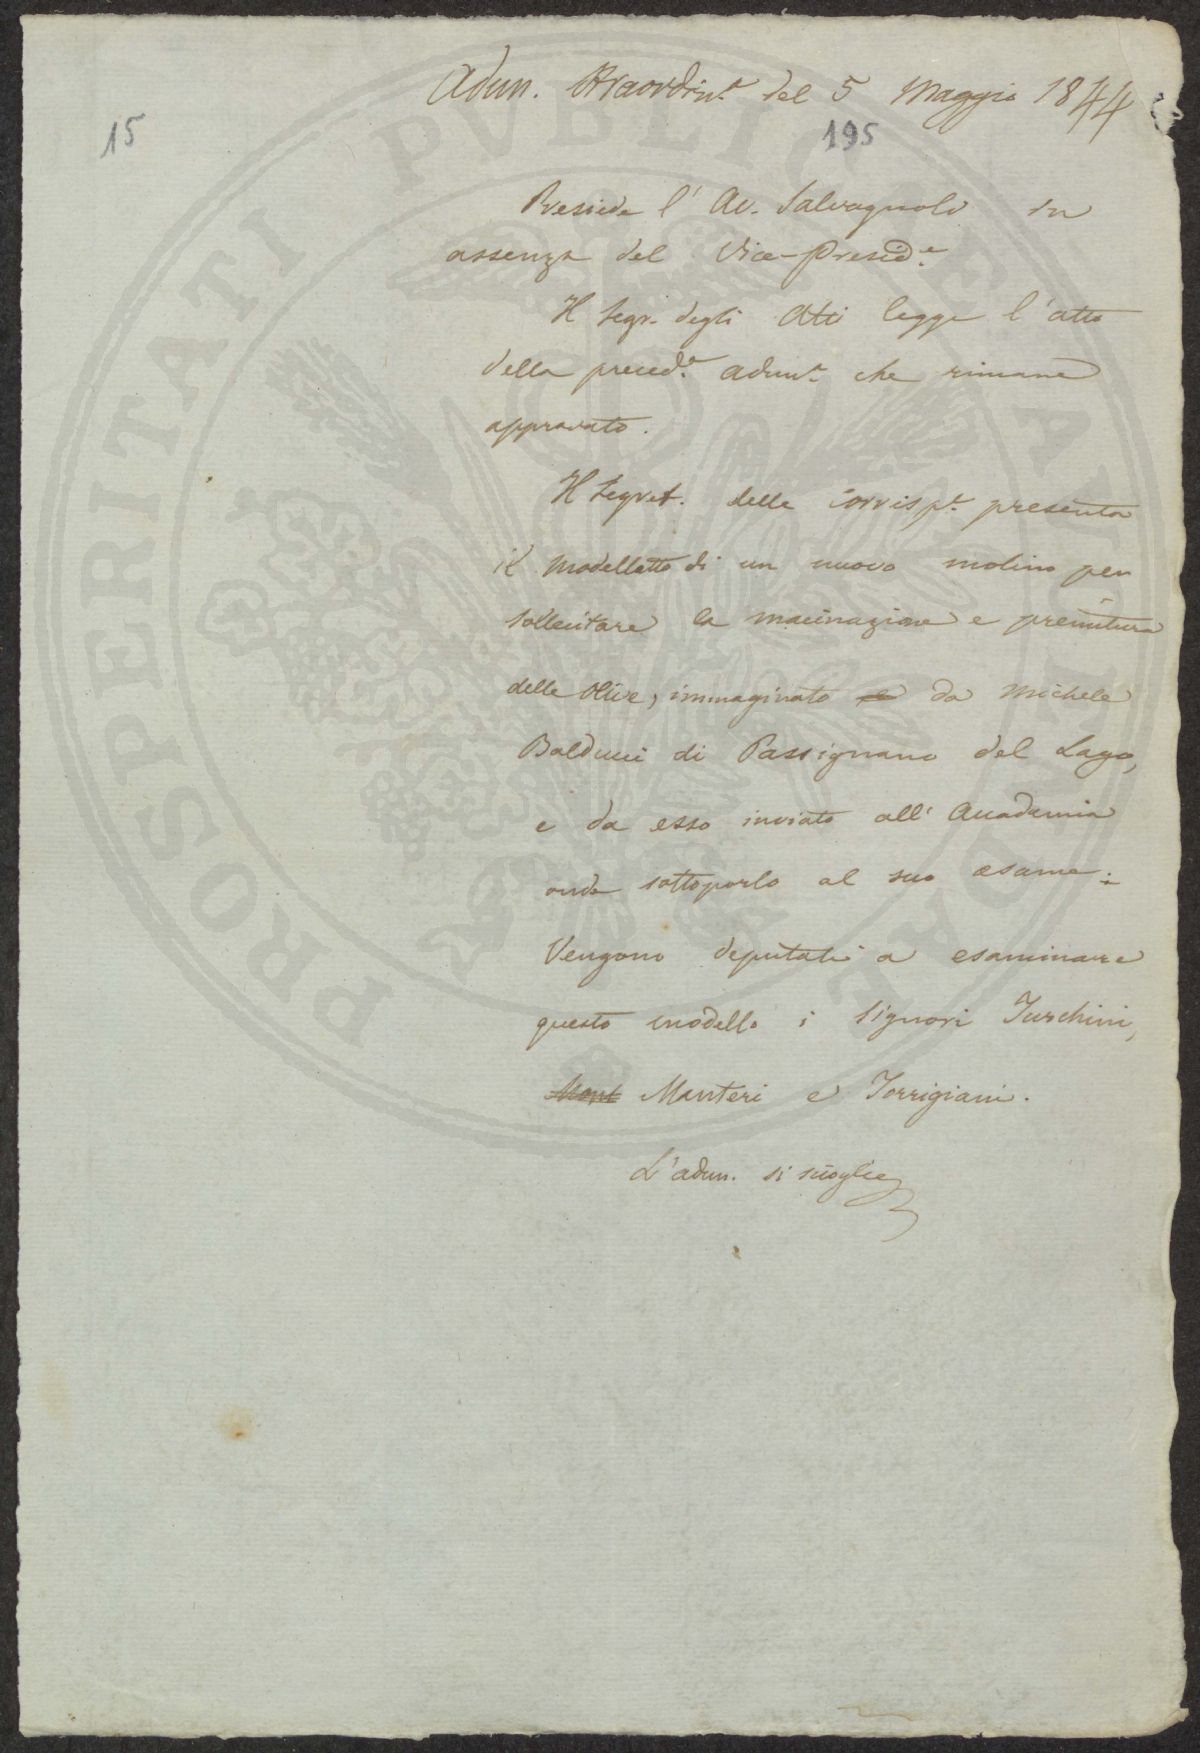 Adun. Straordin.ª del 5 Maggio 1844
15
195
Presiede l' Av. Salvagnoli in
assenza del Vice-Presid.e
Il Segr. degli Atti legge l'atto
della preced.e adun.ª che rimane
approvato.
Il Segret. delle Corrisp.e presenta
il modelletto di un nuovo molino per
sollecitare la macinazione e premitura
delle Olive, immaginato da Michele
Balducci di Passignano del Lago,
e da esso inviato all' Accademia
onde sottoporlo al suo esame.
Vengono deputati a esaminare
questo modello i Signori Turchini,
Mont Manteri e Torrigiani.
L'adun. si scioglie
PROSPERITATI PUBLICAE AUGENDAE